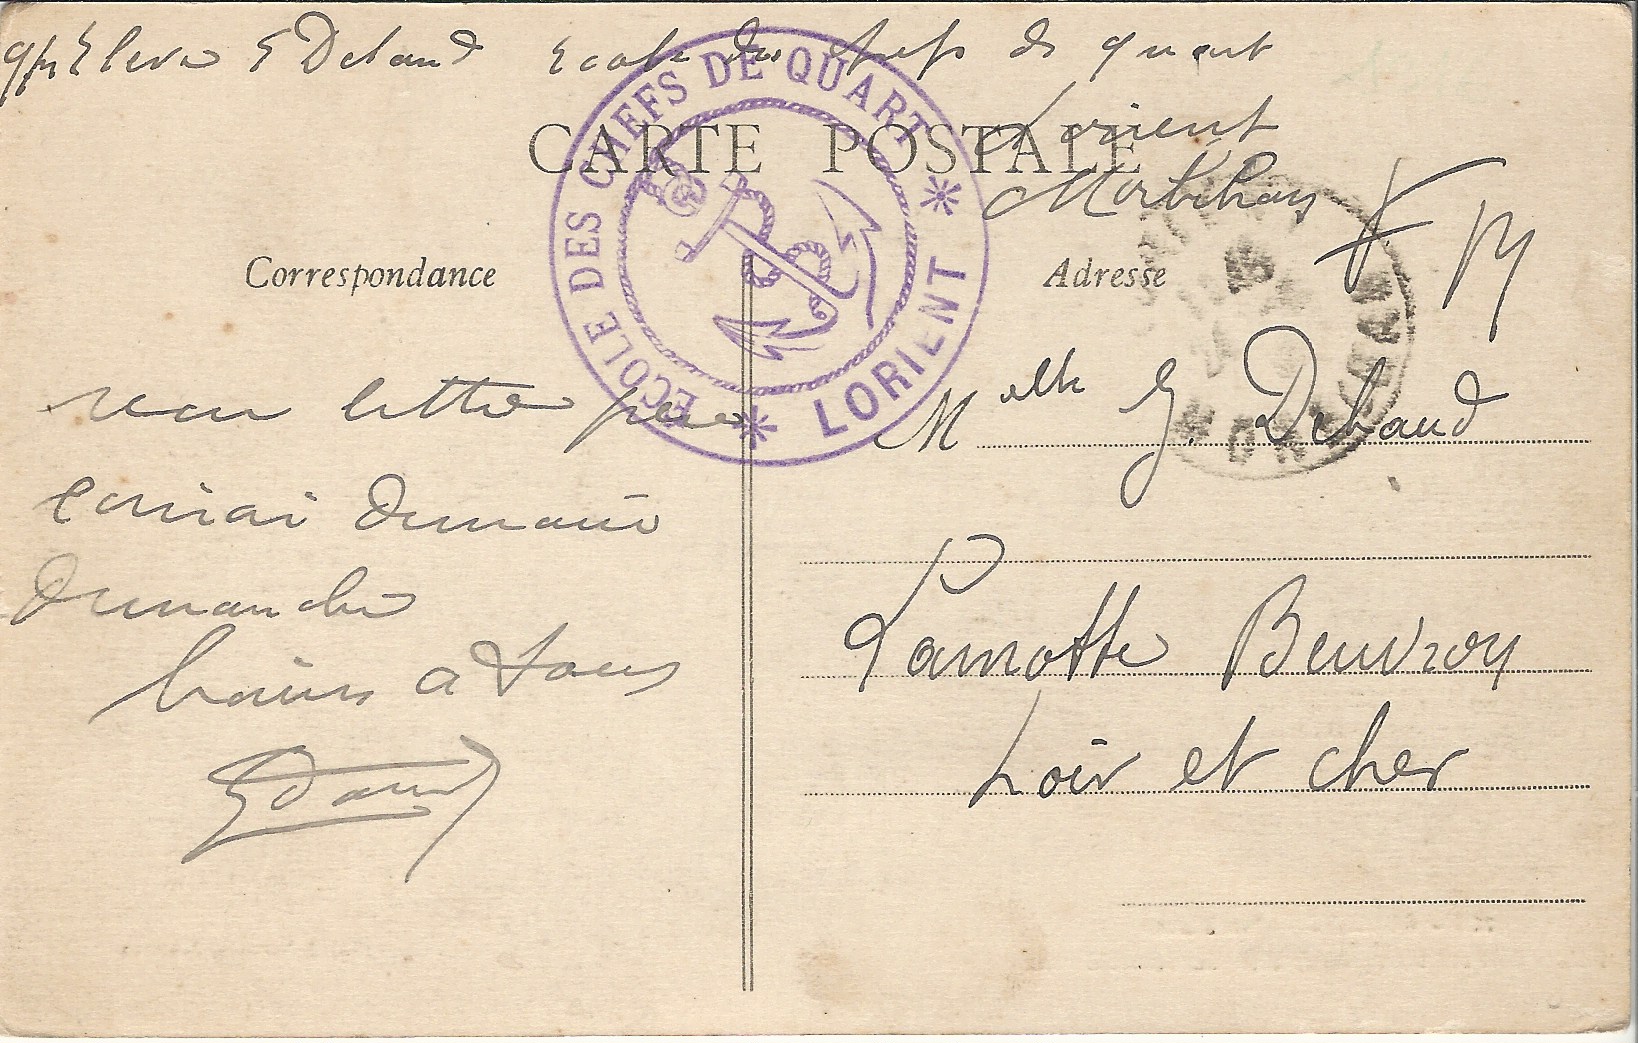 Eleve E Debaud Ecole des chefs de quart
Lorient
Morbihan
F M
CARTE POSTALE
ECOLE DES CHEFS DE QUART
* LORIENT *
Correspondance
recu lettre
écrirai demain
dimanche
baisers a tous
EDebaud
Adresse
Melle G. Debaud
Lamotte Beuvron
Loir et cher
MORBIHAN